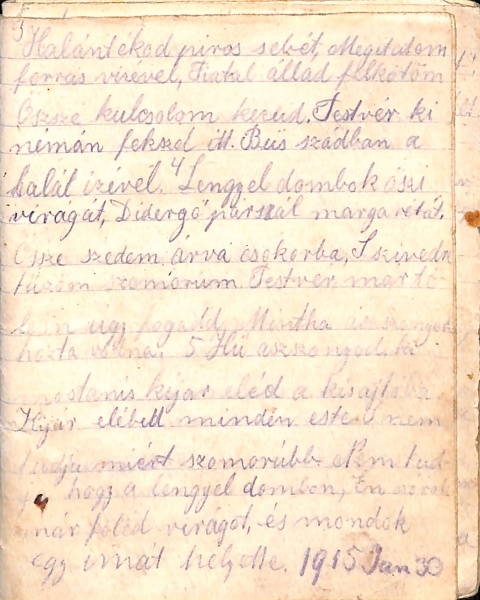 3
Halántékod piros sebét, Megitatom
forrás vizével, Fiatal állad felkötöm
Öszsze kulcsolom kezed. Testvér ki
némán fekszel itt. Bús szádban a
halál izével. 4 Lengyel dombok őszi
virágát, Didergő pár szál margarétát.
Össe szedem árva csokorba, S szivedre
tűzöm szomorúm Testvér már tő
lem ugy fogadd, Mintha aszszonyod
hozta volna. 5 Hű aszszonyod ki
mostanis kijár eléd a kisajtóba
Kijár elébed minden este nem
tudja miért szomorúbb. Nem tud
ja hogy a lengyel dombon, Én szórok
már föléd virágot, és mondok
egy imát helyette. 1915 Jan 30